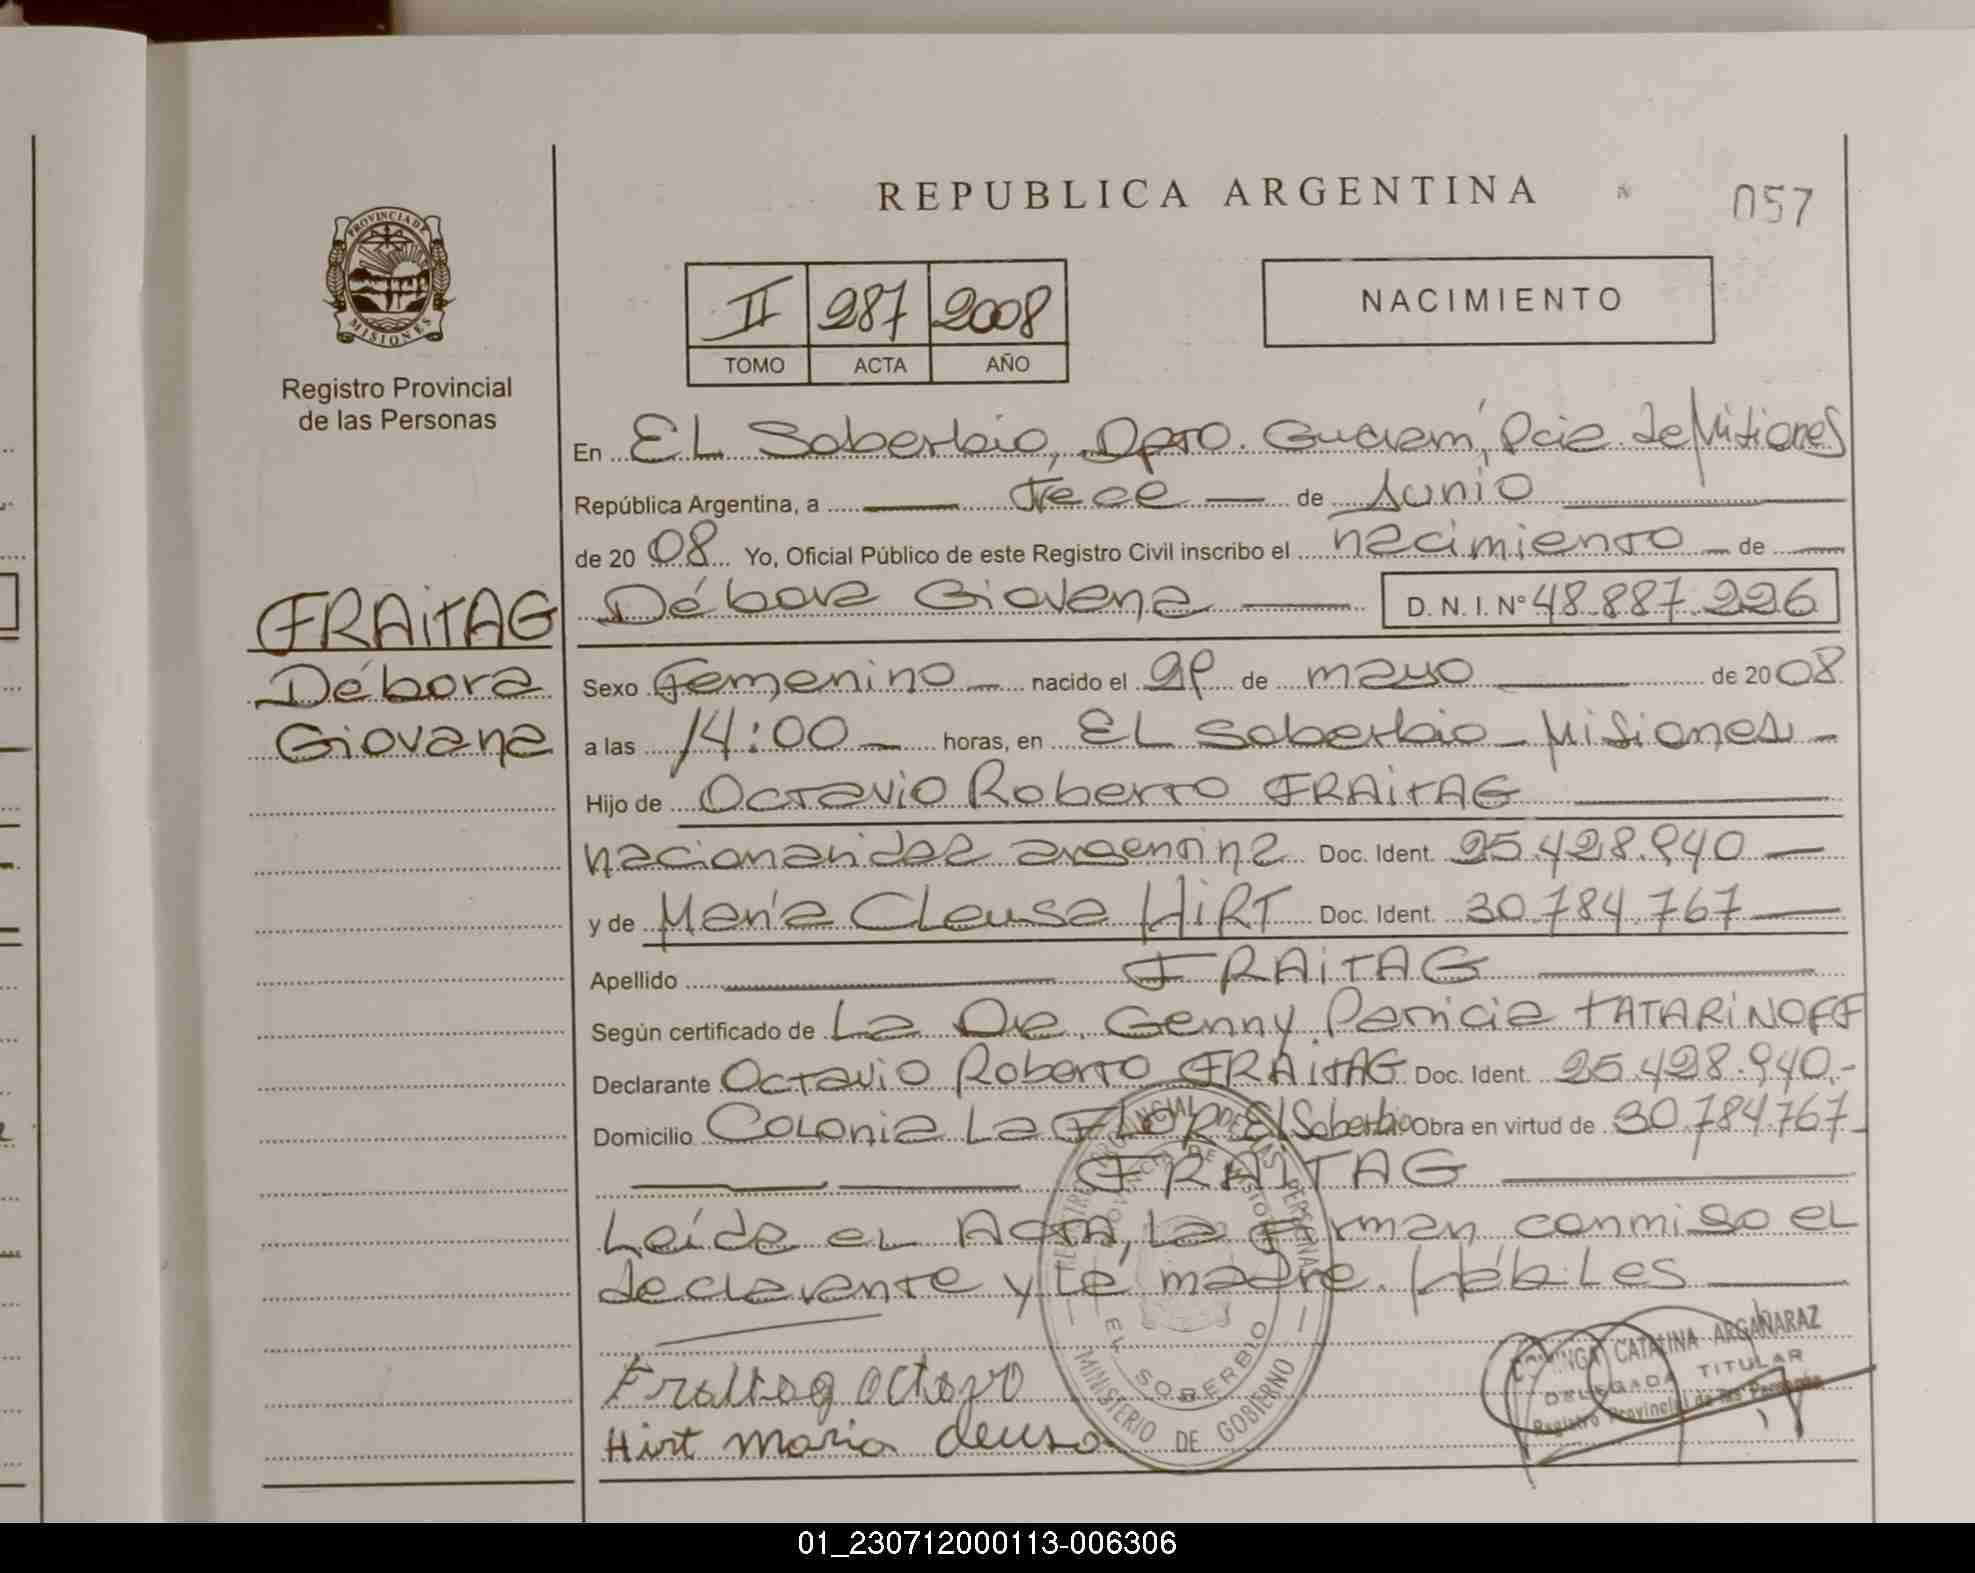 REPUBLICA ARGENTINA
057
PROVINCIA DE
MISIONES
Registro Provincial
de las Personas
II 287 2008
TOMO ACTA AÑO
NACIMIENTO
En EL Soberbio, Dpto. Guaraní, Pcia de Misiones
República Argentina, a trece de Junio
de 2008 Yo, Oficial Público de este Registro Civil inscribo el nacimiento de
Débora Giovana D. N. I. Nº 48.887.226
FRAITAG
Débora
Giovana
Sexo Femenino nacido el 29 de mayo de 2008
a las 14:00 horas, en EL Soberbio - Misiones -
Hijo de Octavio Roberto FRAITAG
nacionalidad argentina Doc. Ident. 25.428.940
y de María Cleusa HIRT Doc. Ident. 30.784.767
Apellido FRAITAG
Según certificado de La Dra. Genny Patricia TATARINOFF
Declarante Octavio Roberto FRAITAG Doc. Ident. 25.428.940.-
Domicilio Colonia La FLOR, El Soberbio Obra en virtud de 30.784.767
FRAITAG
Leída el Acta, la firman conmigo el
declarante y la madre. Hábiles
Fraitag octavo
Hirt Maria cleusa
EL SOBERBIO
MINISTERIO DE GOBIERNO
CATALINA ARGAÑARAZ
DELEGADA TITULAR
Registro Provincial de las Personas
01_230712000113-006306